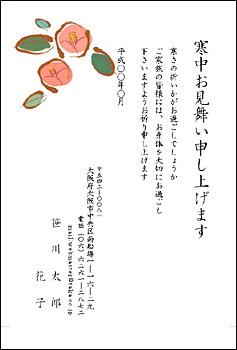 寒中お見舞い申し上げます
寒さの折いかがお過ごしでしょうか
ご家族の皆様には、お身体を大切にお過ごし
下さいますようお祈り申し上げます
平成〇〇年〇月
〒五四二-〇〇八一
大阪府大阪市中央区南船場一-一六-二九
電話(〇六)六二六一-二八七二
笹川太郎
花子